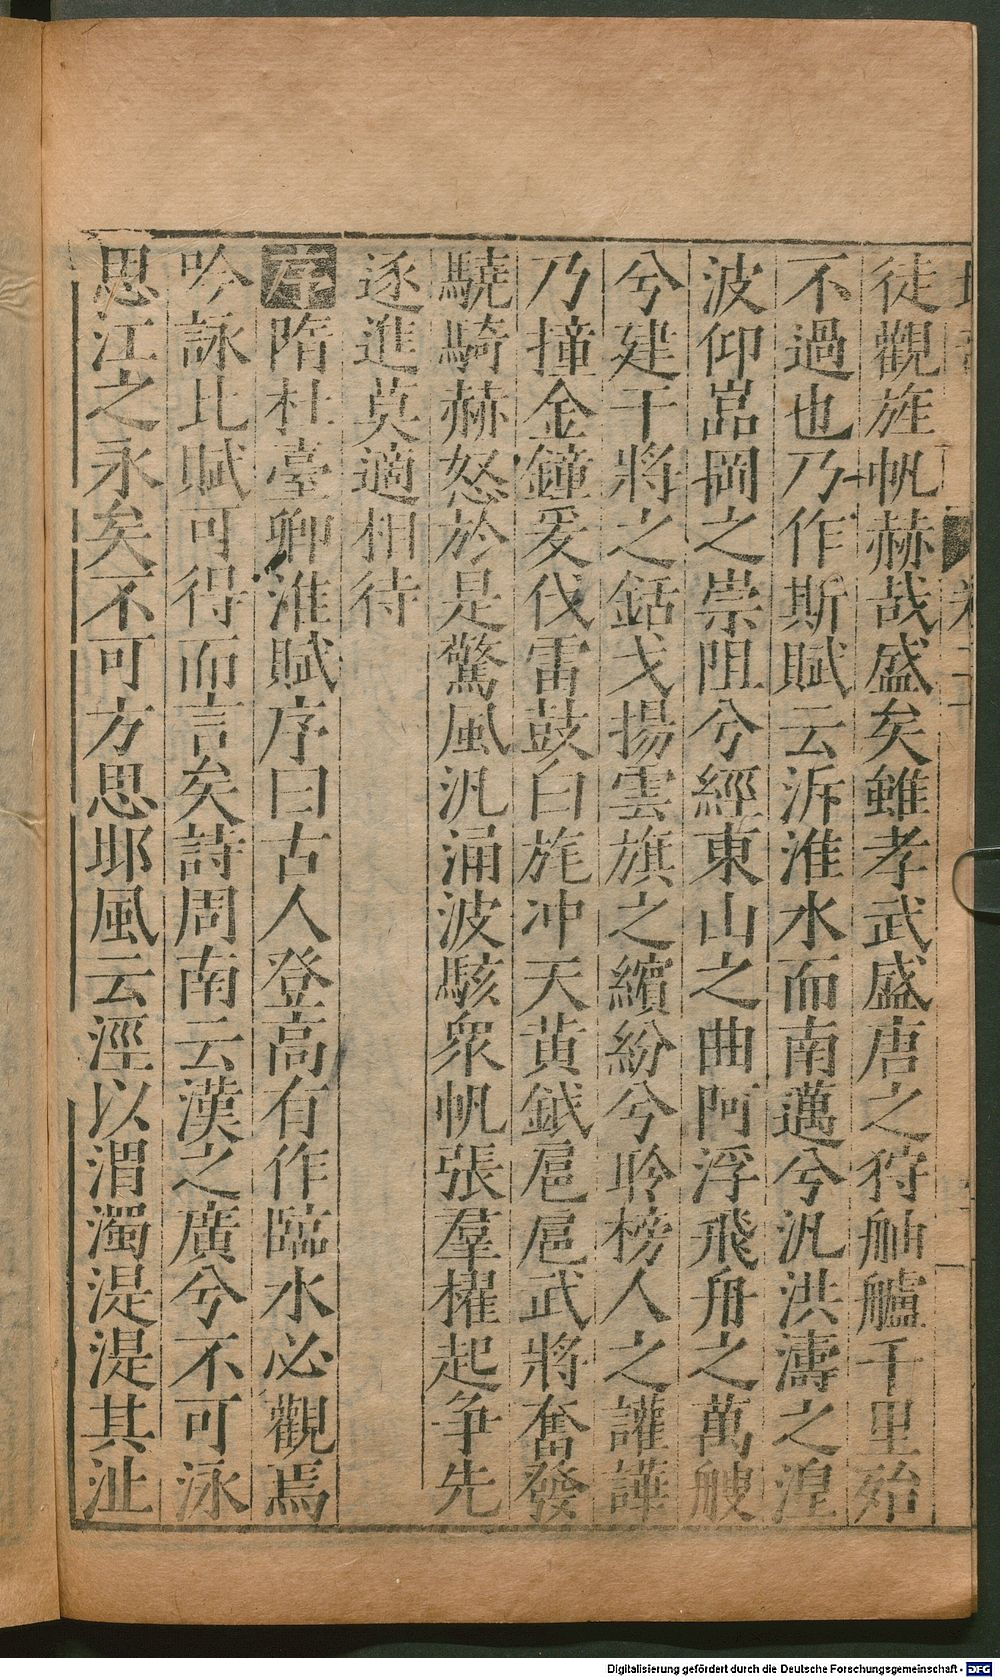 徒觀旌帆赫哉盛矣雖孝武盛唐之狩舳艫千里殆
不過也乃作斯賦云泝淮水而南邁兮汎洪濤之湟
波仰嵓岡之崇阻兮經東山之曲阿浮飛舟之萬艘
兮建干將之銛戈揚雲旗之繽紛兮聆榜人之讙譁
乃撞金鐘爰伐雷鼓白旄冲天黃鉞扈扈武將奮發
驍騎赫怒於是驚風汎涌波駭衆帆張羣櫂起争先
逐進莫適相待
序隋杜臺卿淮賦序曰古人登高有作臨水必觀焉
吟詠比賦可得而言矣詩周南云漢之廣兮不可泳
思江之永矣不可方思邶風云涇以渭濁湜湜其沚
Digitalisierung gefördert durch die Deutsche Forschungsgemeinschaft - DFG